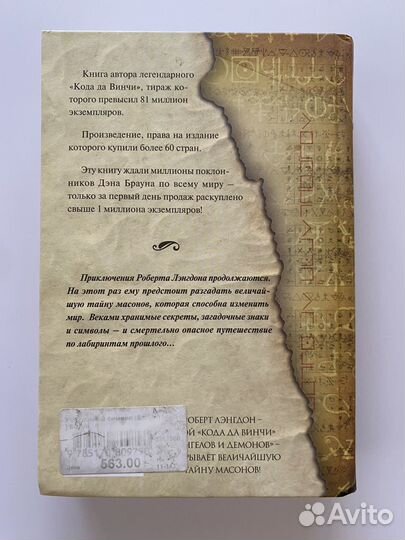 Книга автора легендарного
«Кода да Винчи», тираж ко-
торого превысил 81 миллион
экземпляров.
Произведение, права на издание
которого купили более 60 стран.
Эту книгу ждали миллионы поклон-
ников Дэна Брауна по всему миру —
только за первый день продаж раскуплено
свыше 1 миллиона экземпляров!
Приключения Роберта Лэнгдона продолжаются.
На этот раз ему предстоит разгадать величай-
шую тайну масонов, которая способна изменить
мир. Веками хранимые секреты, загадочные знаки
и символы — и смертельно опасное путешествие
по лабиринтам прошлого...
РОБЕРТ ЛЭНГДОН –
ОЙ «КОДА ДА ВИНЧИ»
НГЕЛОВ И ДЕМОНОВ» –
РЫВАЕТ ВЕЛИЧАЙШУЮ
ТАЙНУ МАСОНОВ!
563.00
Avito